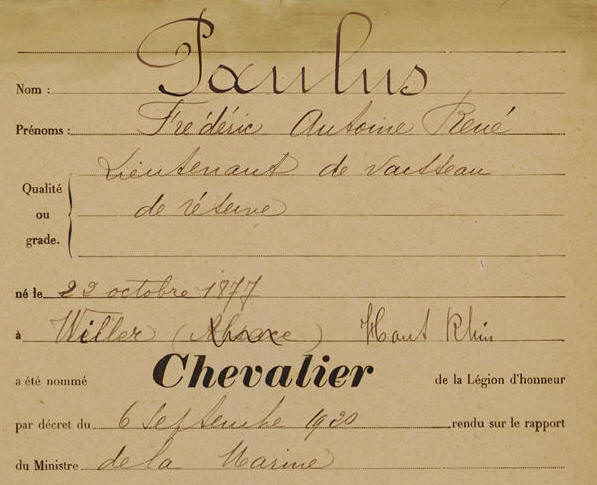 Nom : Paulus
Prénoms : Frédéric Antoine René
Qualité ou grade. Lieutenant de vaisseau
de réserve
né le 23 octobre 1877
à Willer (Alsace) Haut Rhin
a été nommé Chevalier de la Légion d'honneur
par décret du 6 Septembre 1920 rendu sur le rapport
du Ministre de la Marine